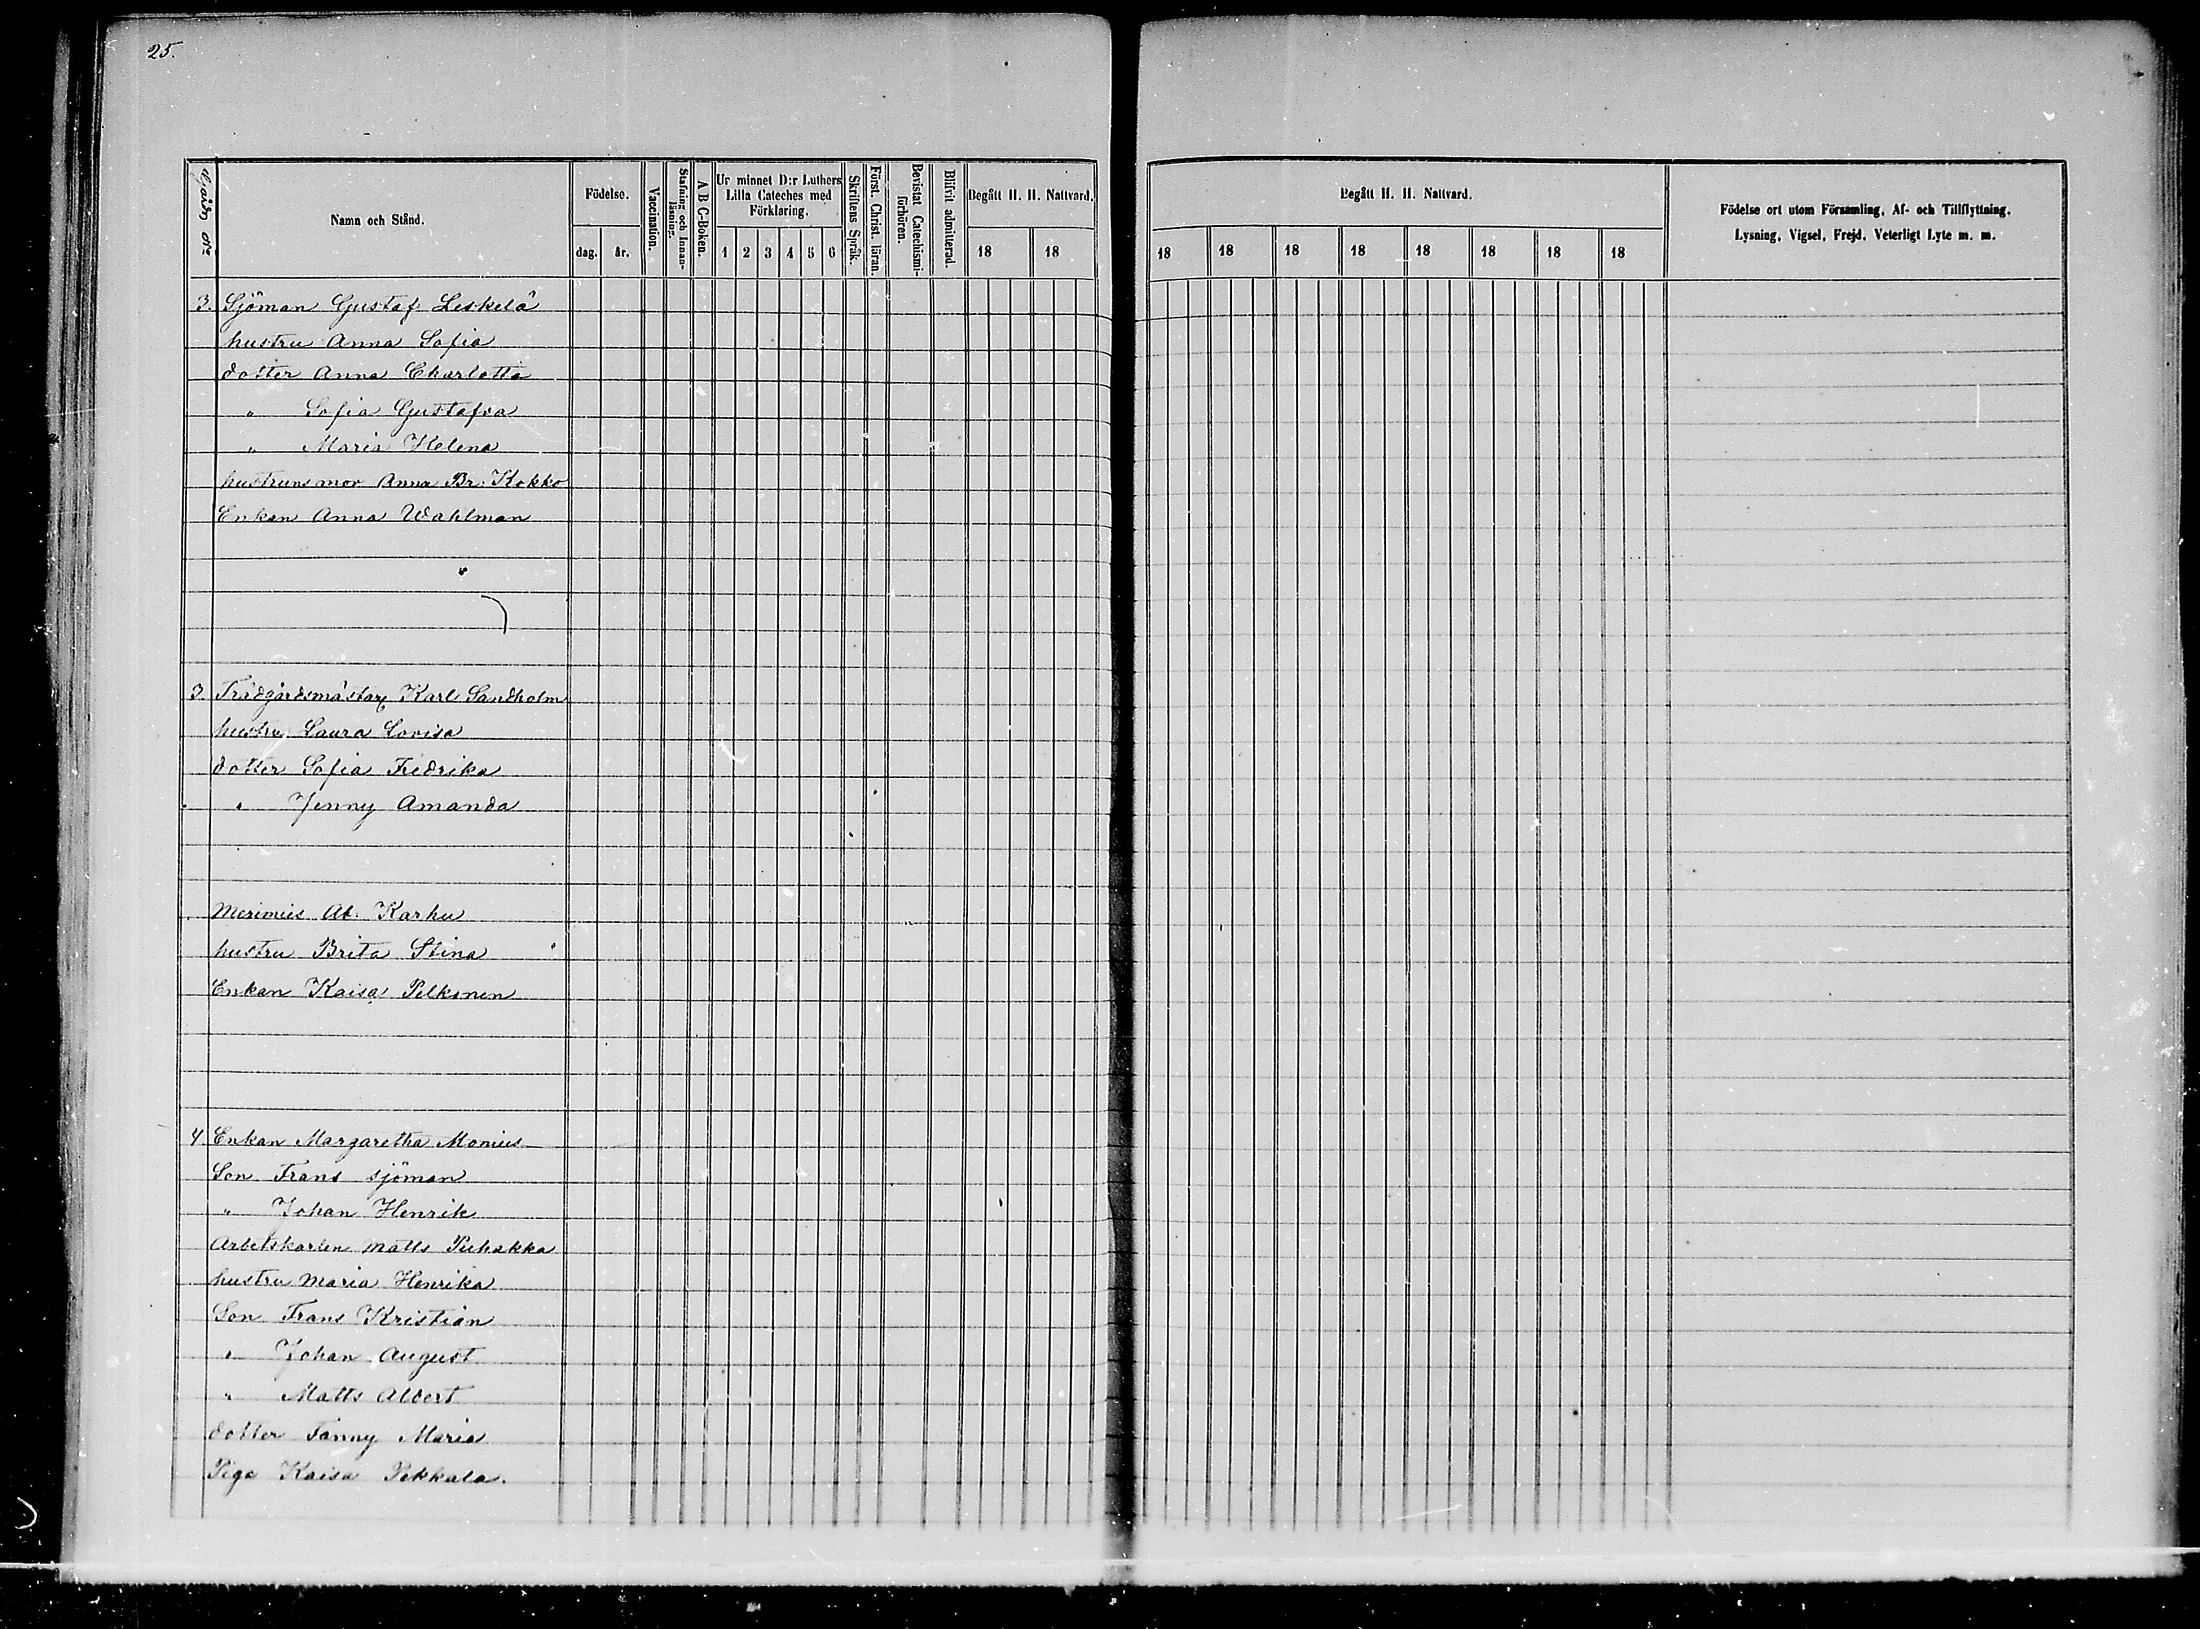 25.
Gårds №
Namn och Stånd.
Födelse.
dag.
år.
Vaccination.
Stafning och Innan-
läsning.
A B C-Boken.
Ur minnet D:r Luthers
Lilla Cateches med
Förklaring.
1 2 3 4 5 6
Skriftens Språk.
Först. Christ. läran.
Bevistat Catechismi-
förhören.
Blifvit admitterad.
Begått H. H. Nattvard.
18 18
Begått H. H. Nattvard.
18 18 18 18 18 18 18 18
Födelse ort utom Församling, Af- och Tillflyttning.
Lysning, Vigsel, Frejd, Veterligt Lyte m. m.
3. Sjöman Gustaf Leskelä
hustru Anna Sofia
dotter Anna Charlotta
" Sofia Gustafva
" Maria Helena
hustruns mor Anna Br. Kokko
Enkan Anna Wahlman
3. Trädgårdsmästar Karl Sandholm
hustru Laura Lovisa
dotter Sofia Fredrika
" Jenny Amanda
Merimies Ab. Karhu
hustru Brita Stina
Enkan Kaisa Pelkonen
4 Enkan Margaretha Monius
Son Frans sjöman
" Johan Henrik
Arbetskarlen Matts Puhakka
hustru Maria Henrika
Son Frans Kristian
" Johan August
" Matts Albert
dotter Fanny Maria
Piga Kaisa Pekkala.